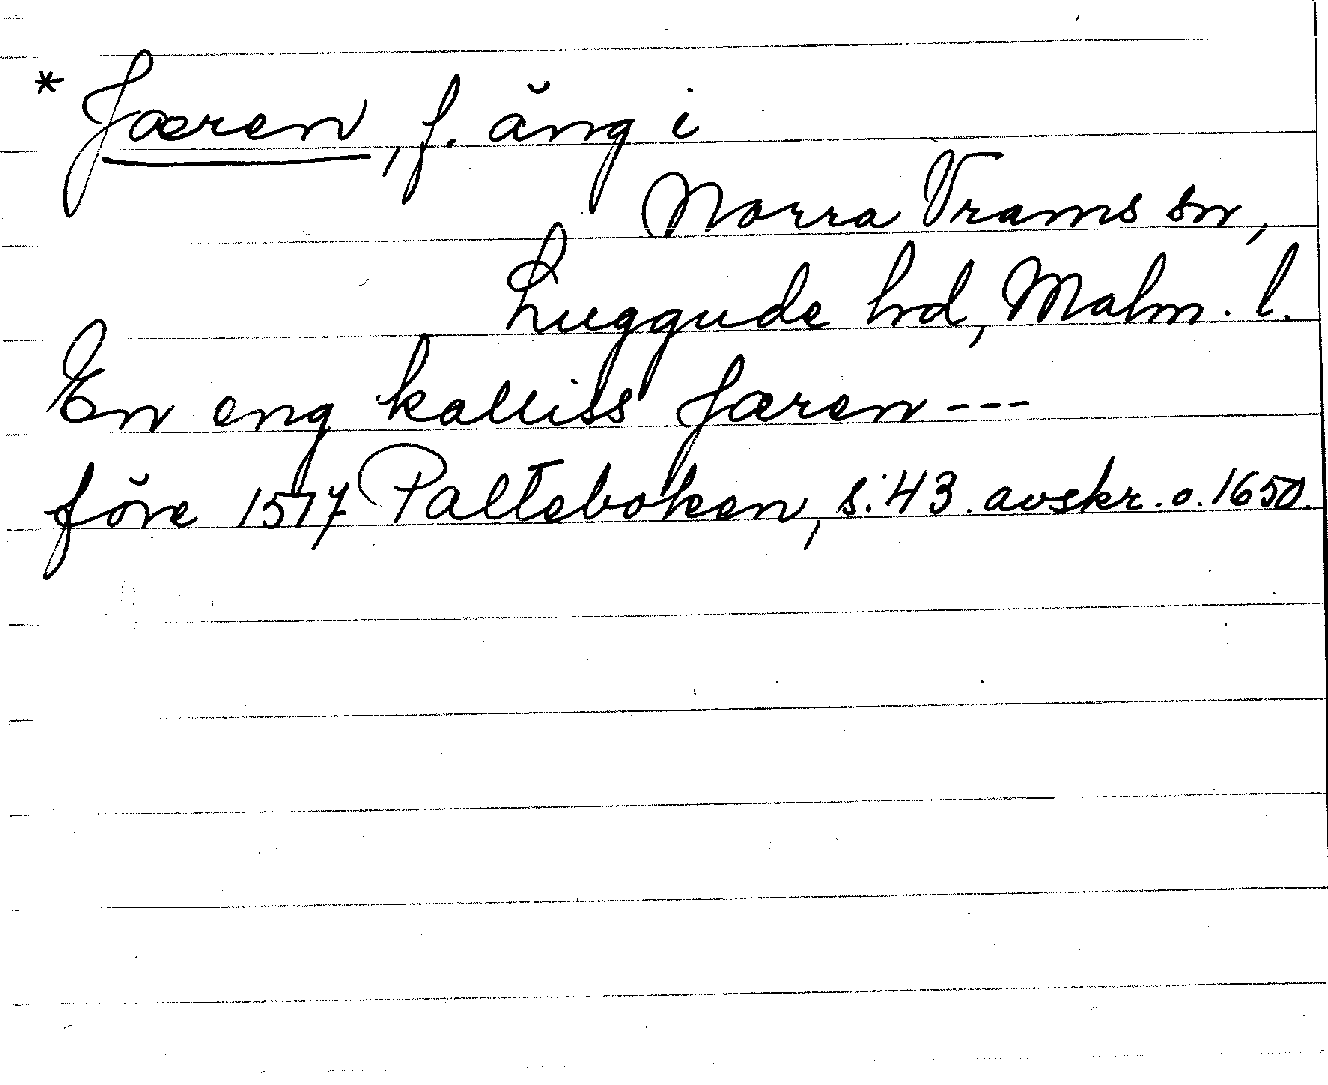 * Jæren, f. äng i
Norra Vrams sn,
Luggude hd, Malm. l.
En eng kalliss Jæren ---
före 1577 Palteboken, s. 43. avskr. o. 1650.